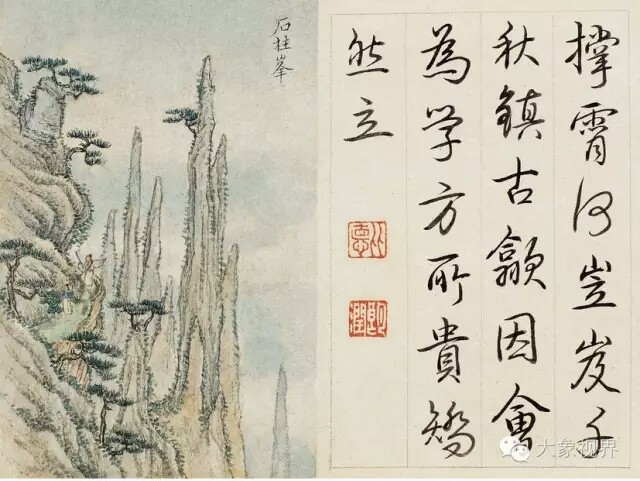 撑霄何岦岌千
秋鎮古歙因會
為学方所貴矯
然立
石柱峯
大象视界